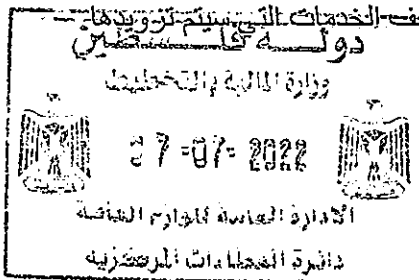 ف الخدمات التي سيتم تزويدها
دولة فلسطين
وزارة المالية والتخطيط
07-07-2022
الادارة العامة للوازم العامة
دائرة العطاءات المركزية